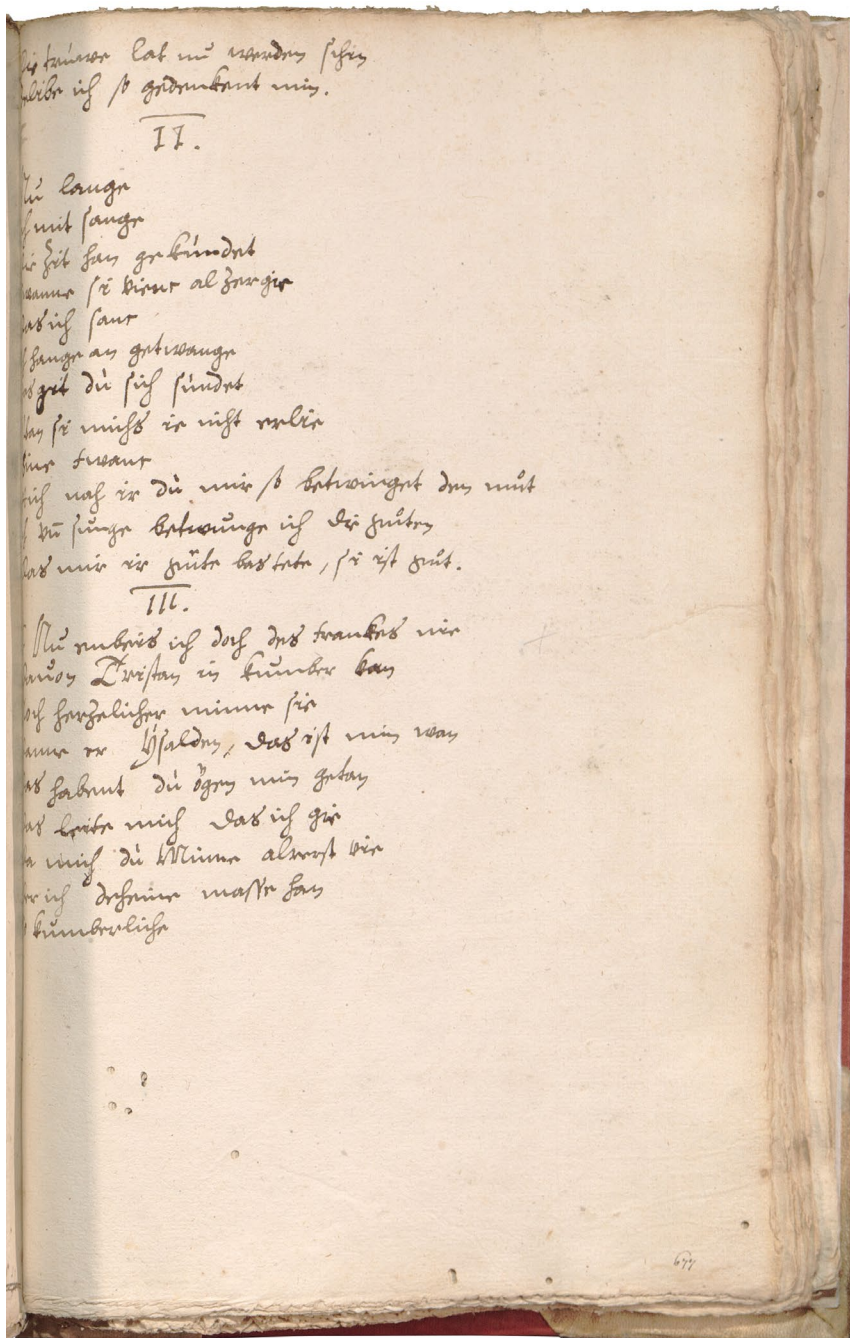 truwe lat nu werden schin
ich so gedenkent min.
II.
Nu lange
mit sange
zit han gekùndet
swanne si vienc al zergie
das ich sanc
hange an getwange
git dù sich sùndet
si michs ie niht erlie
twanc
nah ir dù mir so betwinget den můt
vn̄ sunge betwunge ich die gůten
das mir ir gùte bas tete, si ist gůt.
III.
Nu enbeis ich doch des trankes nie
davon Tristan in kumber kan
herzelicher minne sie
er Ysalden, das ist min wan
das habent dù ögen min getan
das leite mich das ich gie
mich dù Minne alrerst vie
ich deheine masse han
kumberliche
677